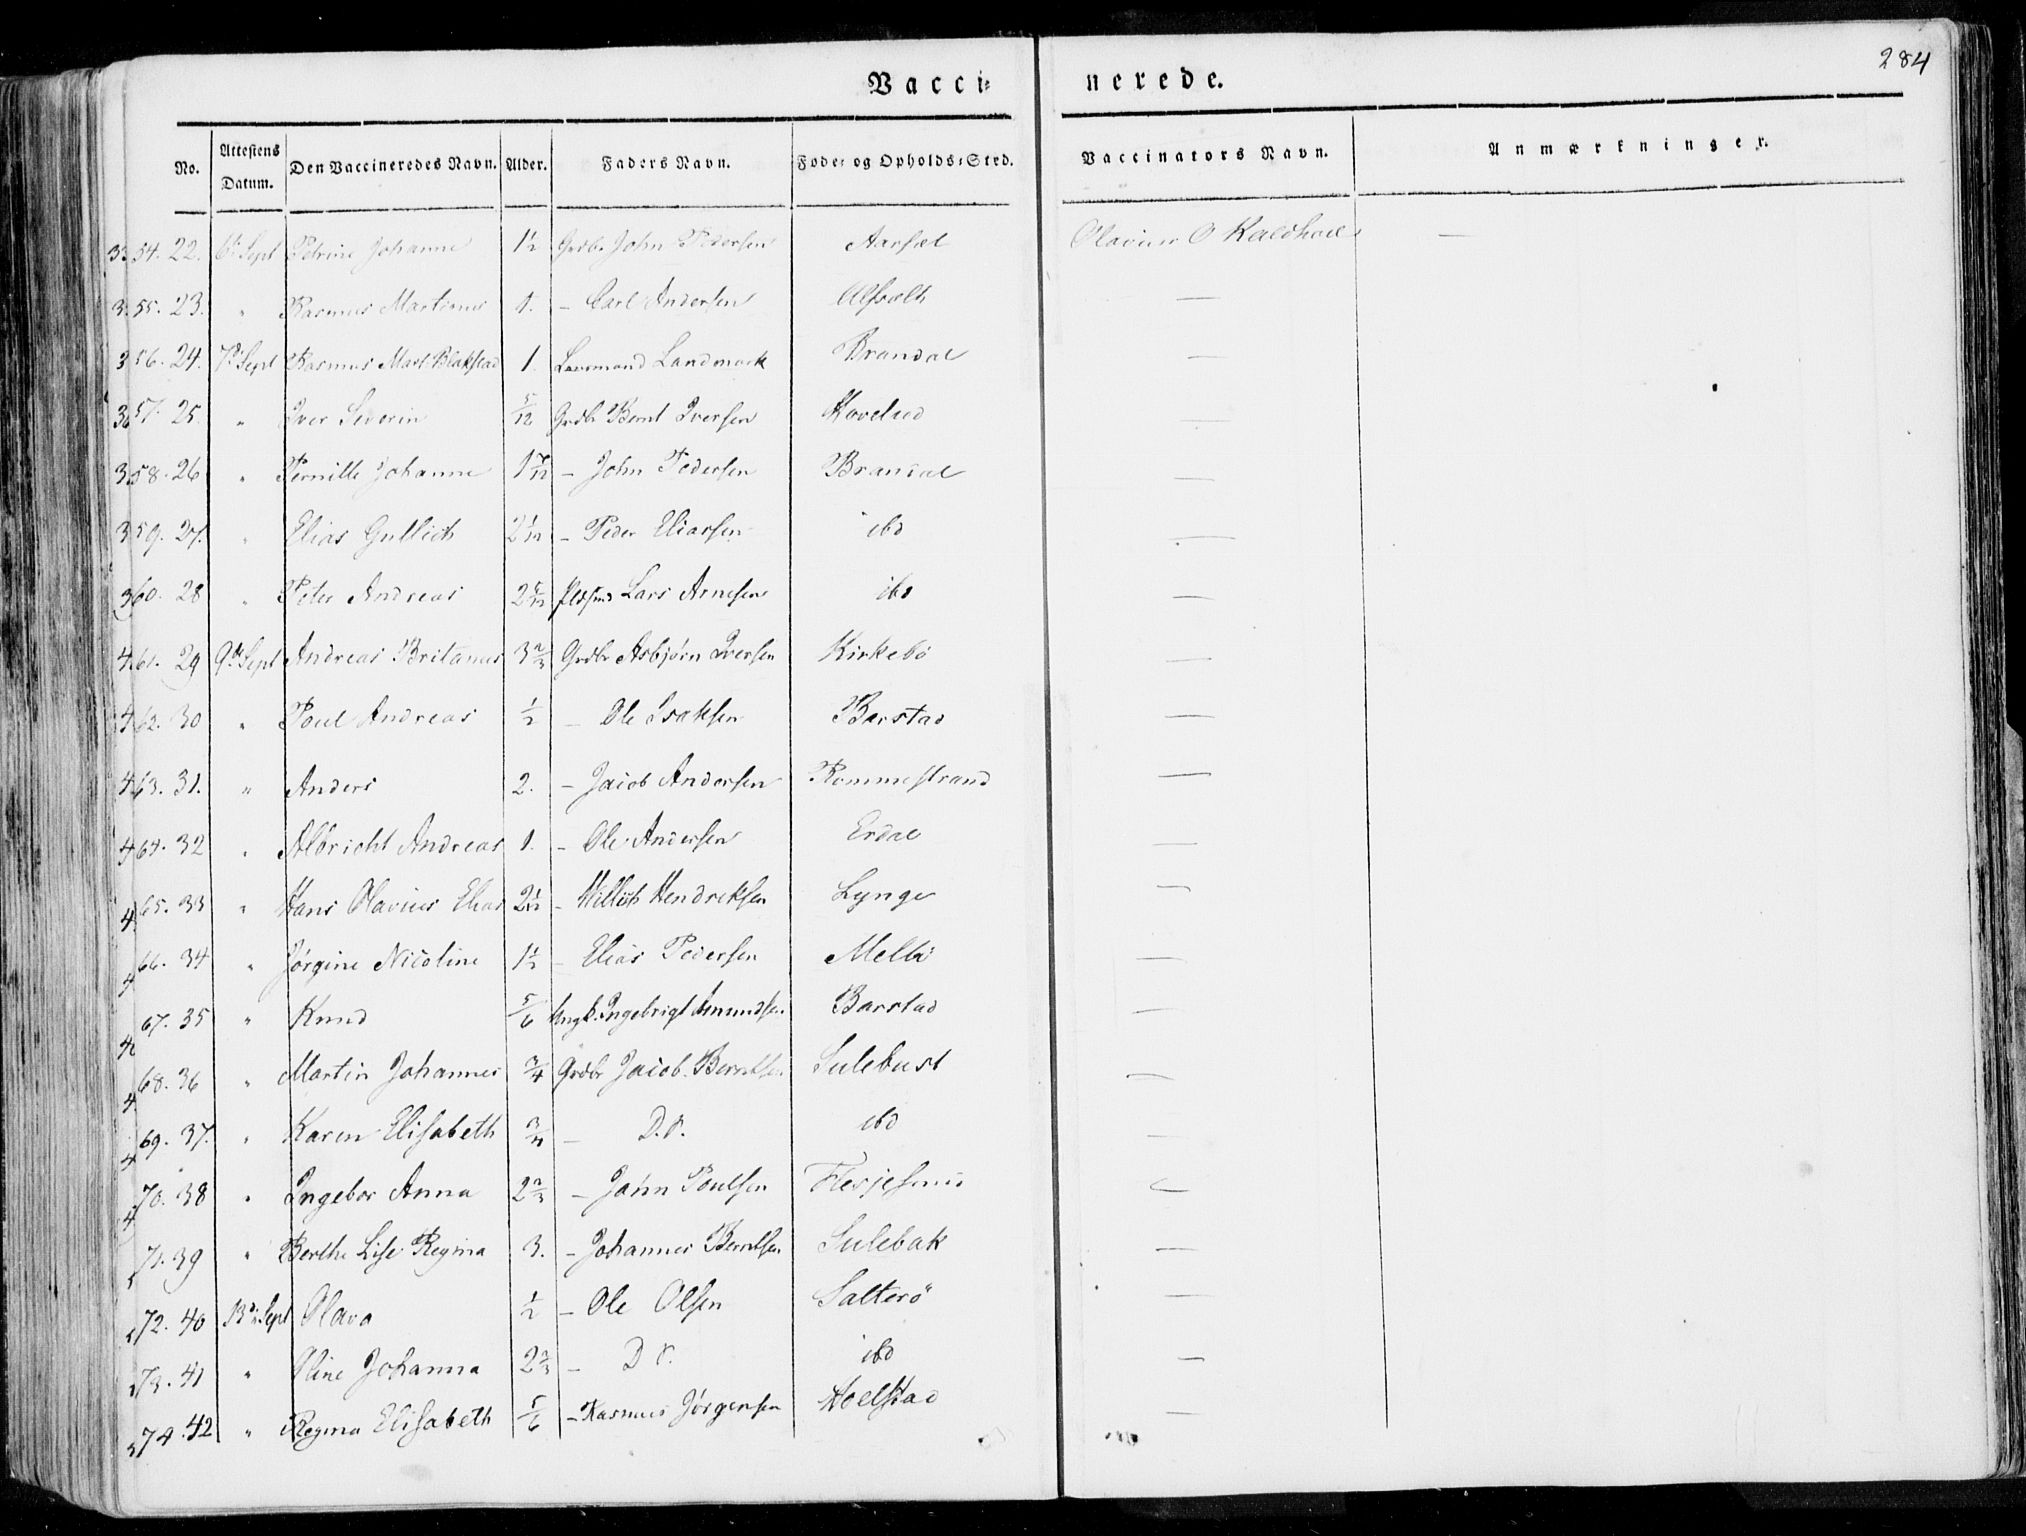 284
Vacci= nerede.
No. Attestens Datum. Den Vaccineredes Navn. Alder. Faders Navn. Føde= og Opholds=Sted. Vaccinators Navn. Anmærkninger.
54. 22. 6. Sept Petrine Johanne 1½ Grdbr John Pedersen Aarsæt Olavius O Kaldhoel —
55. 23. " Rasmus Martinus 1. – Carl Andersen —
56. 24. 7. Sept Rasmus Mart. Blakstad 1. Landmark Brandal —
57. 25. " Iver Severin 5/12 Grdbr Bernt Iversen Hovelsed —
58. 26 " Pernille Johanne 1 7/12 – John Pedersen Brandal —
59. 27. " Elias Gullich 2 1/12 – Peder Eliassen ibd —
60. 28 " Peter Andreas 2 5/12 Lars Arnesen ibd —
61. 29 9de Sept Andreas Britanus 3 2/3 Grdbr Asbjørn Iversen Kirkebö —
62. 30 " Poul Andreas ½ – Ole Isaksen Barstad —
63. 31. " Anders 2. – Jacob Andersen Rommestrand —
64. 32 " Albricht Andreas 1. – Ole Andersen Erdal —
65. 33 " Hans Olavius Elias 2 1/12 – Willich Hendriksen Lynge —
66. 34 " Jørgine Nicoline 1½ – Elias Pedersen Melbö —
67. 35 " Knud 5/6 Ungk. Ingebrigt Amundsen Barstad —
68. 36 " Martin Johannes 3/4 Grdbr Jacob Berntsen Sulebust —
69. 37. " Karen Elisabeth 3/4 – D.o. ibd —
70. 38 " Ingebor Anna 2 2/3 – John Poulsen Flesjesund —
71. 39 " Berthe Lise Regina 3. – Johannes Berntsen Sulebak —
72. 40 13. Sept Olava ½ – Ole Olsen Salterö —
73. 41 " Oline Johanna 2 2/3 – D o. ibd —
74. 42 " Regina Elisabeth 5/6 – Rasmus Jørgensen Hoelstad —